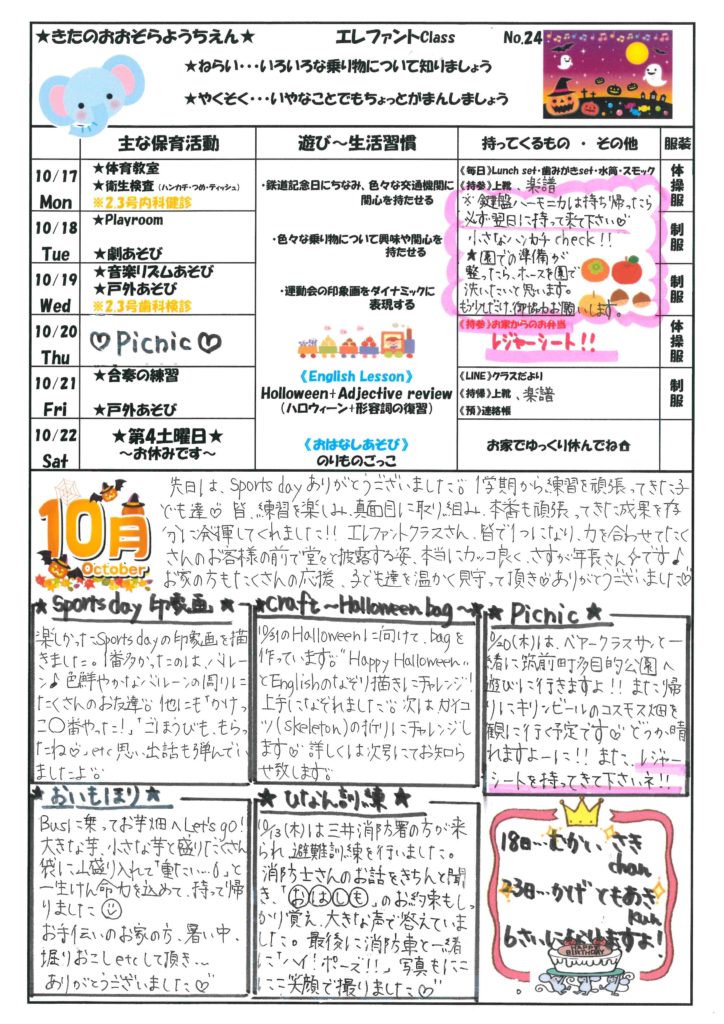 ★きたのおおぞらようちえん★ エレファントClass No.24
★ねらい・・・いろいろな乗り物について知りましょう
★やくそく・・・いやなことでもちょっとがまんしましょう
主な保育活動 遊び～生活習慣 持ってくるもの ・ その他 服装
10/17
Mon
★体育教室
★衛生検査（ハンカチ・つめ・ティッシュ）
※2.3号内科健診
10/18
Tue
★Playroom
★劇あそび
10/19
Wed
★音楽リズムあそび
★戸外あそび
※2.3号歯科検診
10/20
Thu
♡Picnic♡
10/21
Fri
★合奏の練習
★戸外あそび
10/22
Sat
★第4土曜日★
～お休みです～
・鉄道記念日にちなみ、色々な交通機関に
関心を持たせる
・色々な乗り物について興味や関心を
持たせる
・運動会の印象画をダイナミックに
表現する
《English Lesson》
Holloween+Adjective review
（ハロウィーン+形容詞の復習）
《おはなしあそび》
のりものごっこ
《毎日》Lunch set・歯みがきset・水筒・スモック
《持参》上靴、楽譜
※鍵盤ハーモニカは持ち帰ったら
必ず翌日に持って来て下さい♡
小さなハンカチcheck!!
★園での準備が
整ったら、ホースを園で
洗いたいと思います。
もう少しだけ、御協力お願いします。
《持参》お家からのお弁当
レジャーシート!!
《LINE》クラスだより
《持帰》上靴、楽譜
《預》連絡帳
お家でゆっくり休んでね
体操服
制服
制服
体操服
制服
10月
October
先日は、Sports dayありがとうございました♡ 1学期から練習を頑張ってきた子
ども達♡ 皆、練習を楽しみ、真面目に取り組み、本番も頑張ってきた成果を存
分に発揮してくれました!! エレファントクラスさん、皆で1つになり、力を合わせてたく
さんのお客様の前で堂々と披露する姿、本当にカッコ良く、さすが年長さんです♪
お家の方もたくさんの応援、子ども達を温かく見守って頂きありがとうございました♡
★Sports day 印象画★
楽しかったSports dayの印象画を描
きました。1番多かったのは、バルー
ン♪ 色鮮やかなバルーンの周りに
たくさんのお友達♡ 他にも「かけっ
こ〇番やった!」「ごほうびも、もらっ
たね♡」etc 思い出話も弾んでい
ましたよ♡
★Craft～Halloween bag～★
10/31のHalloweenに向けて、bagを
作っています♡ "Happy Halloween"
とEnglishのなぞり描きにチャレンジ!
上手になぞれました♡ 次はガイコ
ツ(skeleton)の折りにチャレンジし
ます♡ 詳しくは次号にてお知ら
せ致します。
★Picnic★
10/20(木)は、ベアークラスサンと一
緒に筑前町多目的公園へ
遊びに行きますよ!! また帰
りにキリンビールのコスモス畑を
観に行く予定です♡ どうか晴
れますよーに!! また、レジャー
シートを持ってきて下さいネ!!
★おいもほり★
Busに乗ってお芋畑へLet's go!
大きな芋、小さな芋と盛りだくさん
袋に山盛り入れて「重たい…」と
一生けん命力を込めて、持って帰
りました☺
お手伝いのお家の方、暑い中、
堀りおこしetcして頂き…
ありがとうございました♡
★ひなん訓練★
10/13(木)は三井消防署の方が来
られ、避難訓練を行いました。
消防士さんのお話をきちんと聞
き、「おはしも」のお約束もしっ
かり覚え、大きな声で答えていま
した。最後に消防車と一緒
に「ハイ!ポーズ!!」写真もにこ
にこ笑顔で撮りました♡
18日…むかい さき
chan
23日…かげ ともあき
kun
6さいになりますよ!
HAPPY
BIRTHDAY